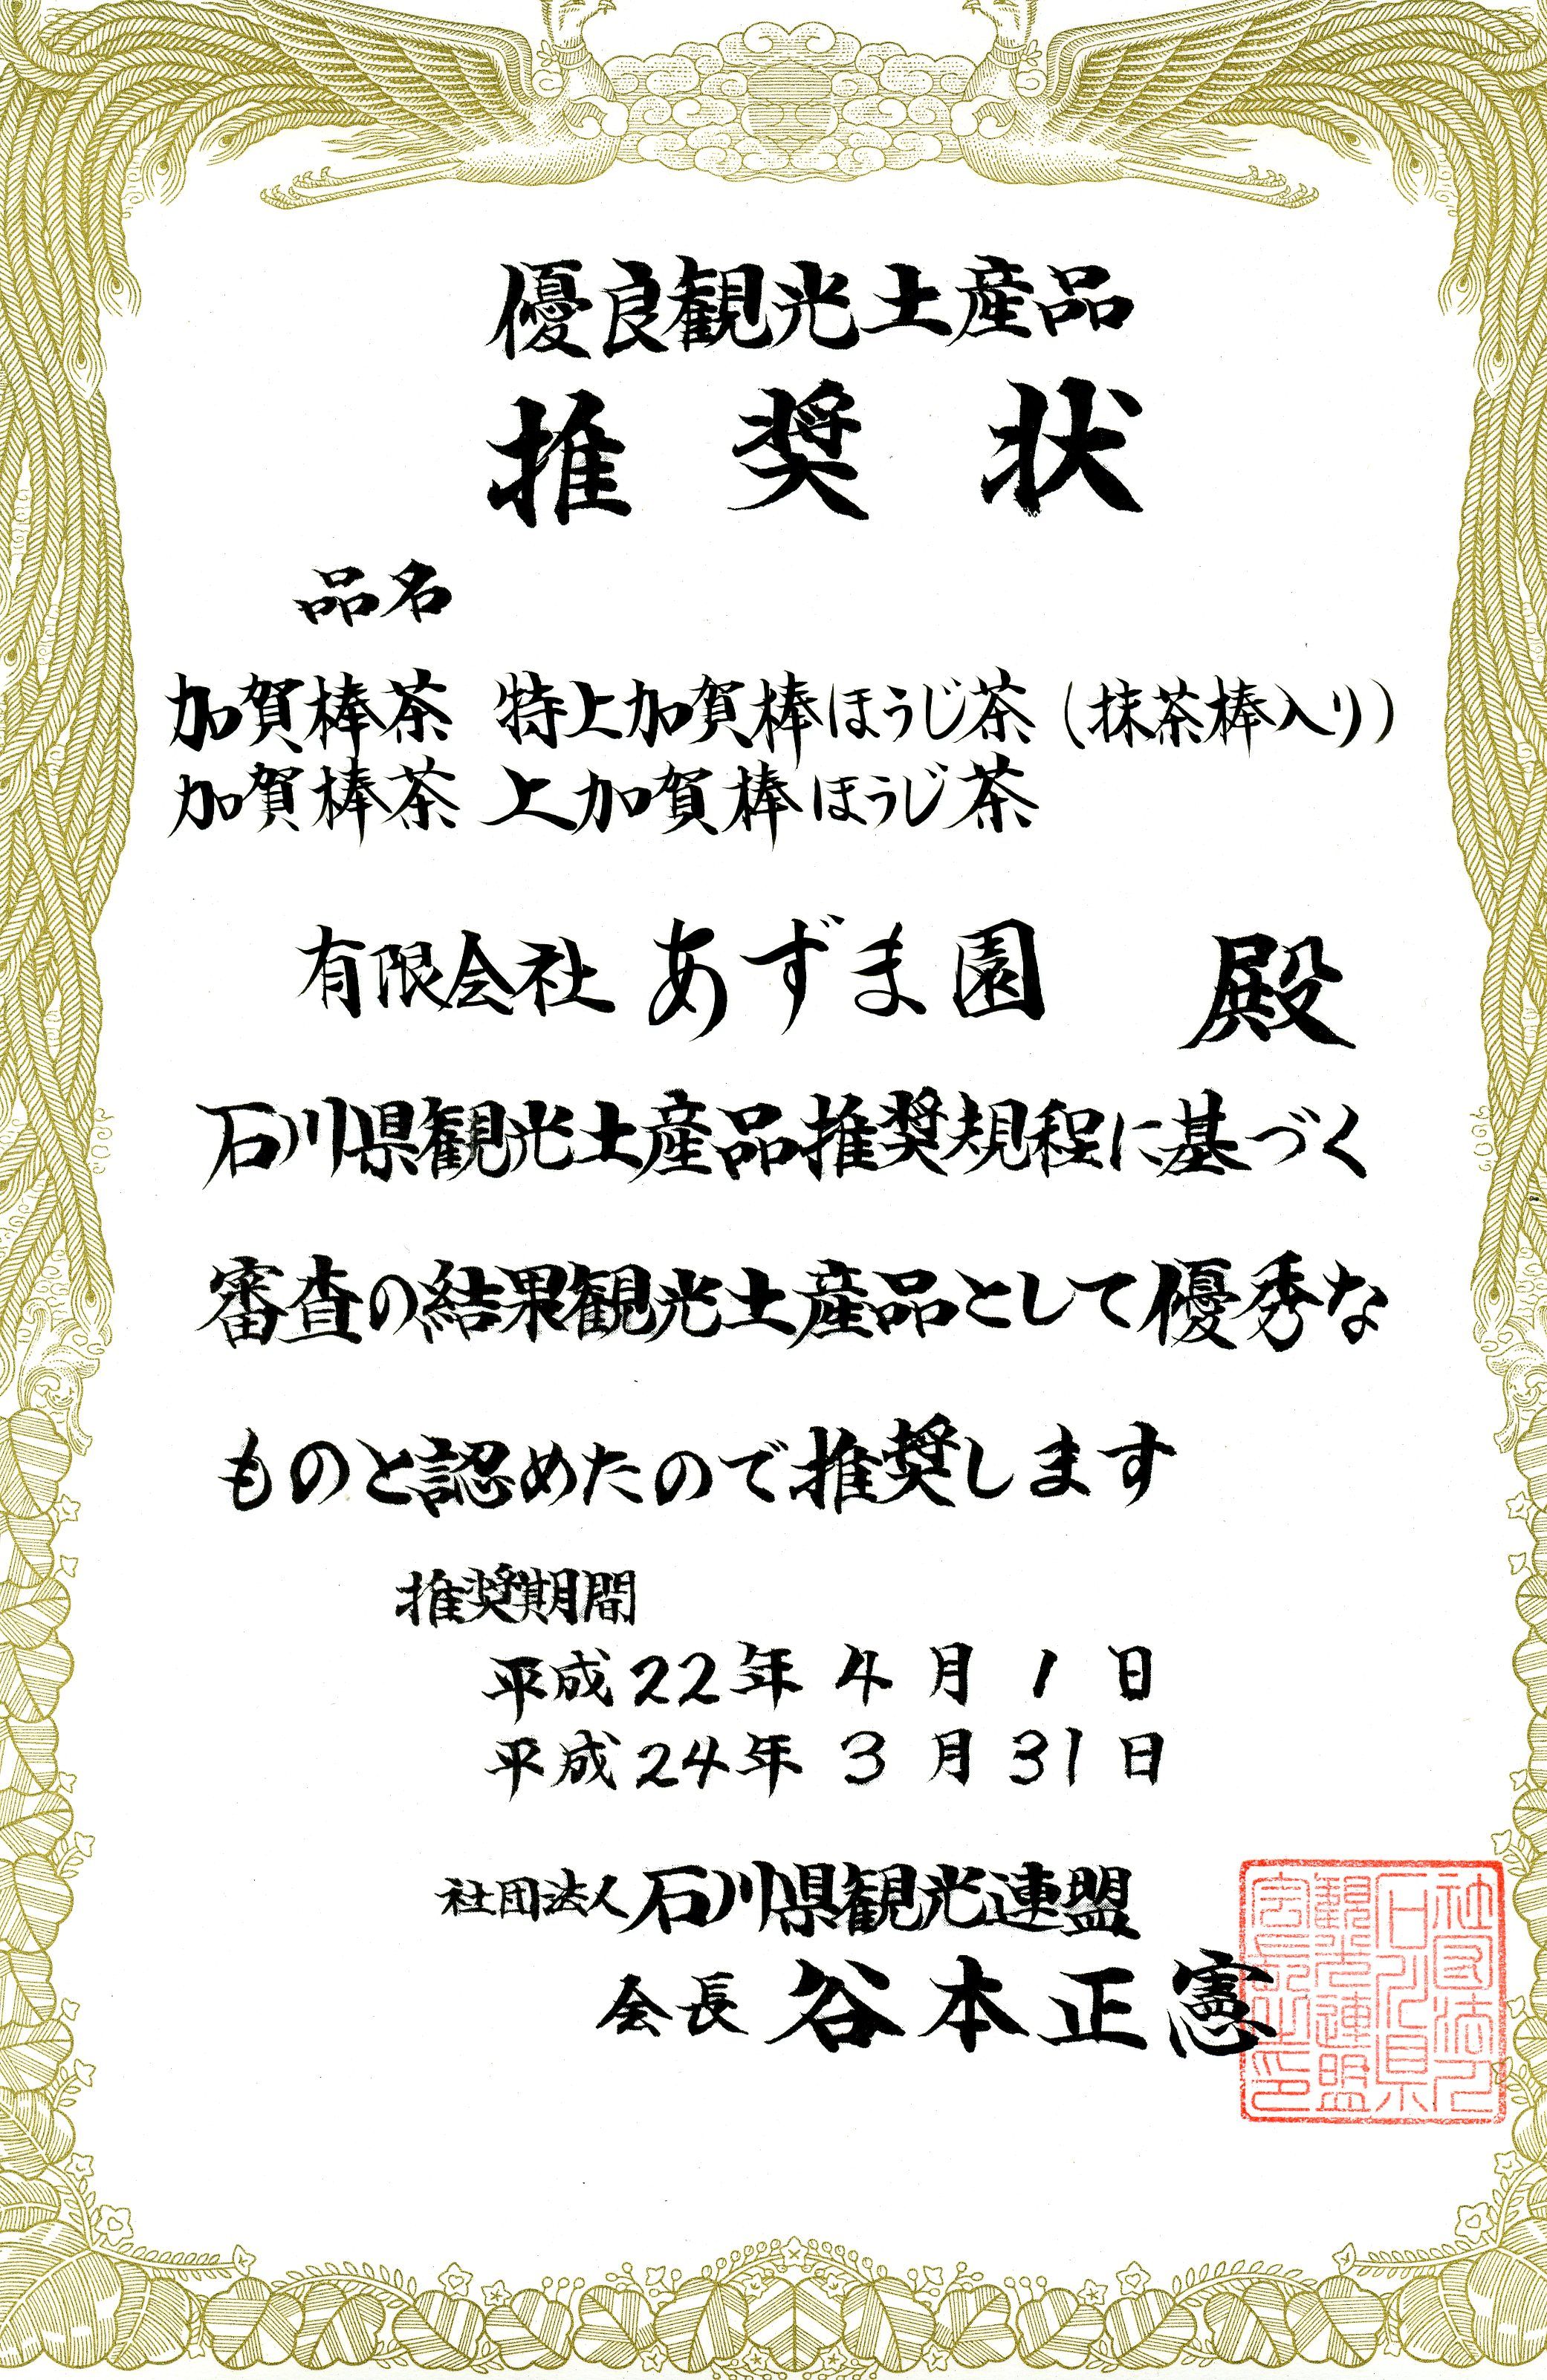 優良観光土産品
推奨状
品名
加賀棒茶 特上加賀棒ほうじ茶（抹茶棒入り）
加賀棒茶 上加賀棒ほうじ茶
有限会社 あずま園 殿
石川県観光土産品推奨規程に基づく
審査の結果観光土産品として優秀な
ものと認めたので推奨します
推奨期間
平成22年4月1日
平成24年3月31日
社団法人石川県観光連盟
会長 谷本正憲
社団法人
石川県
観光連盟
会長之印